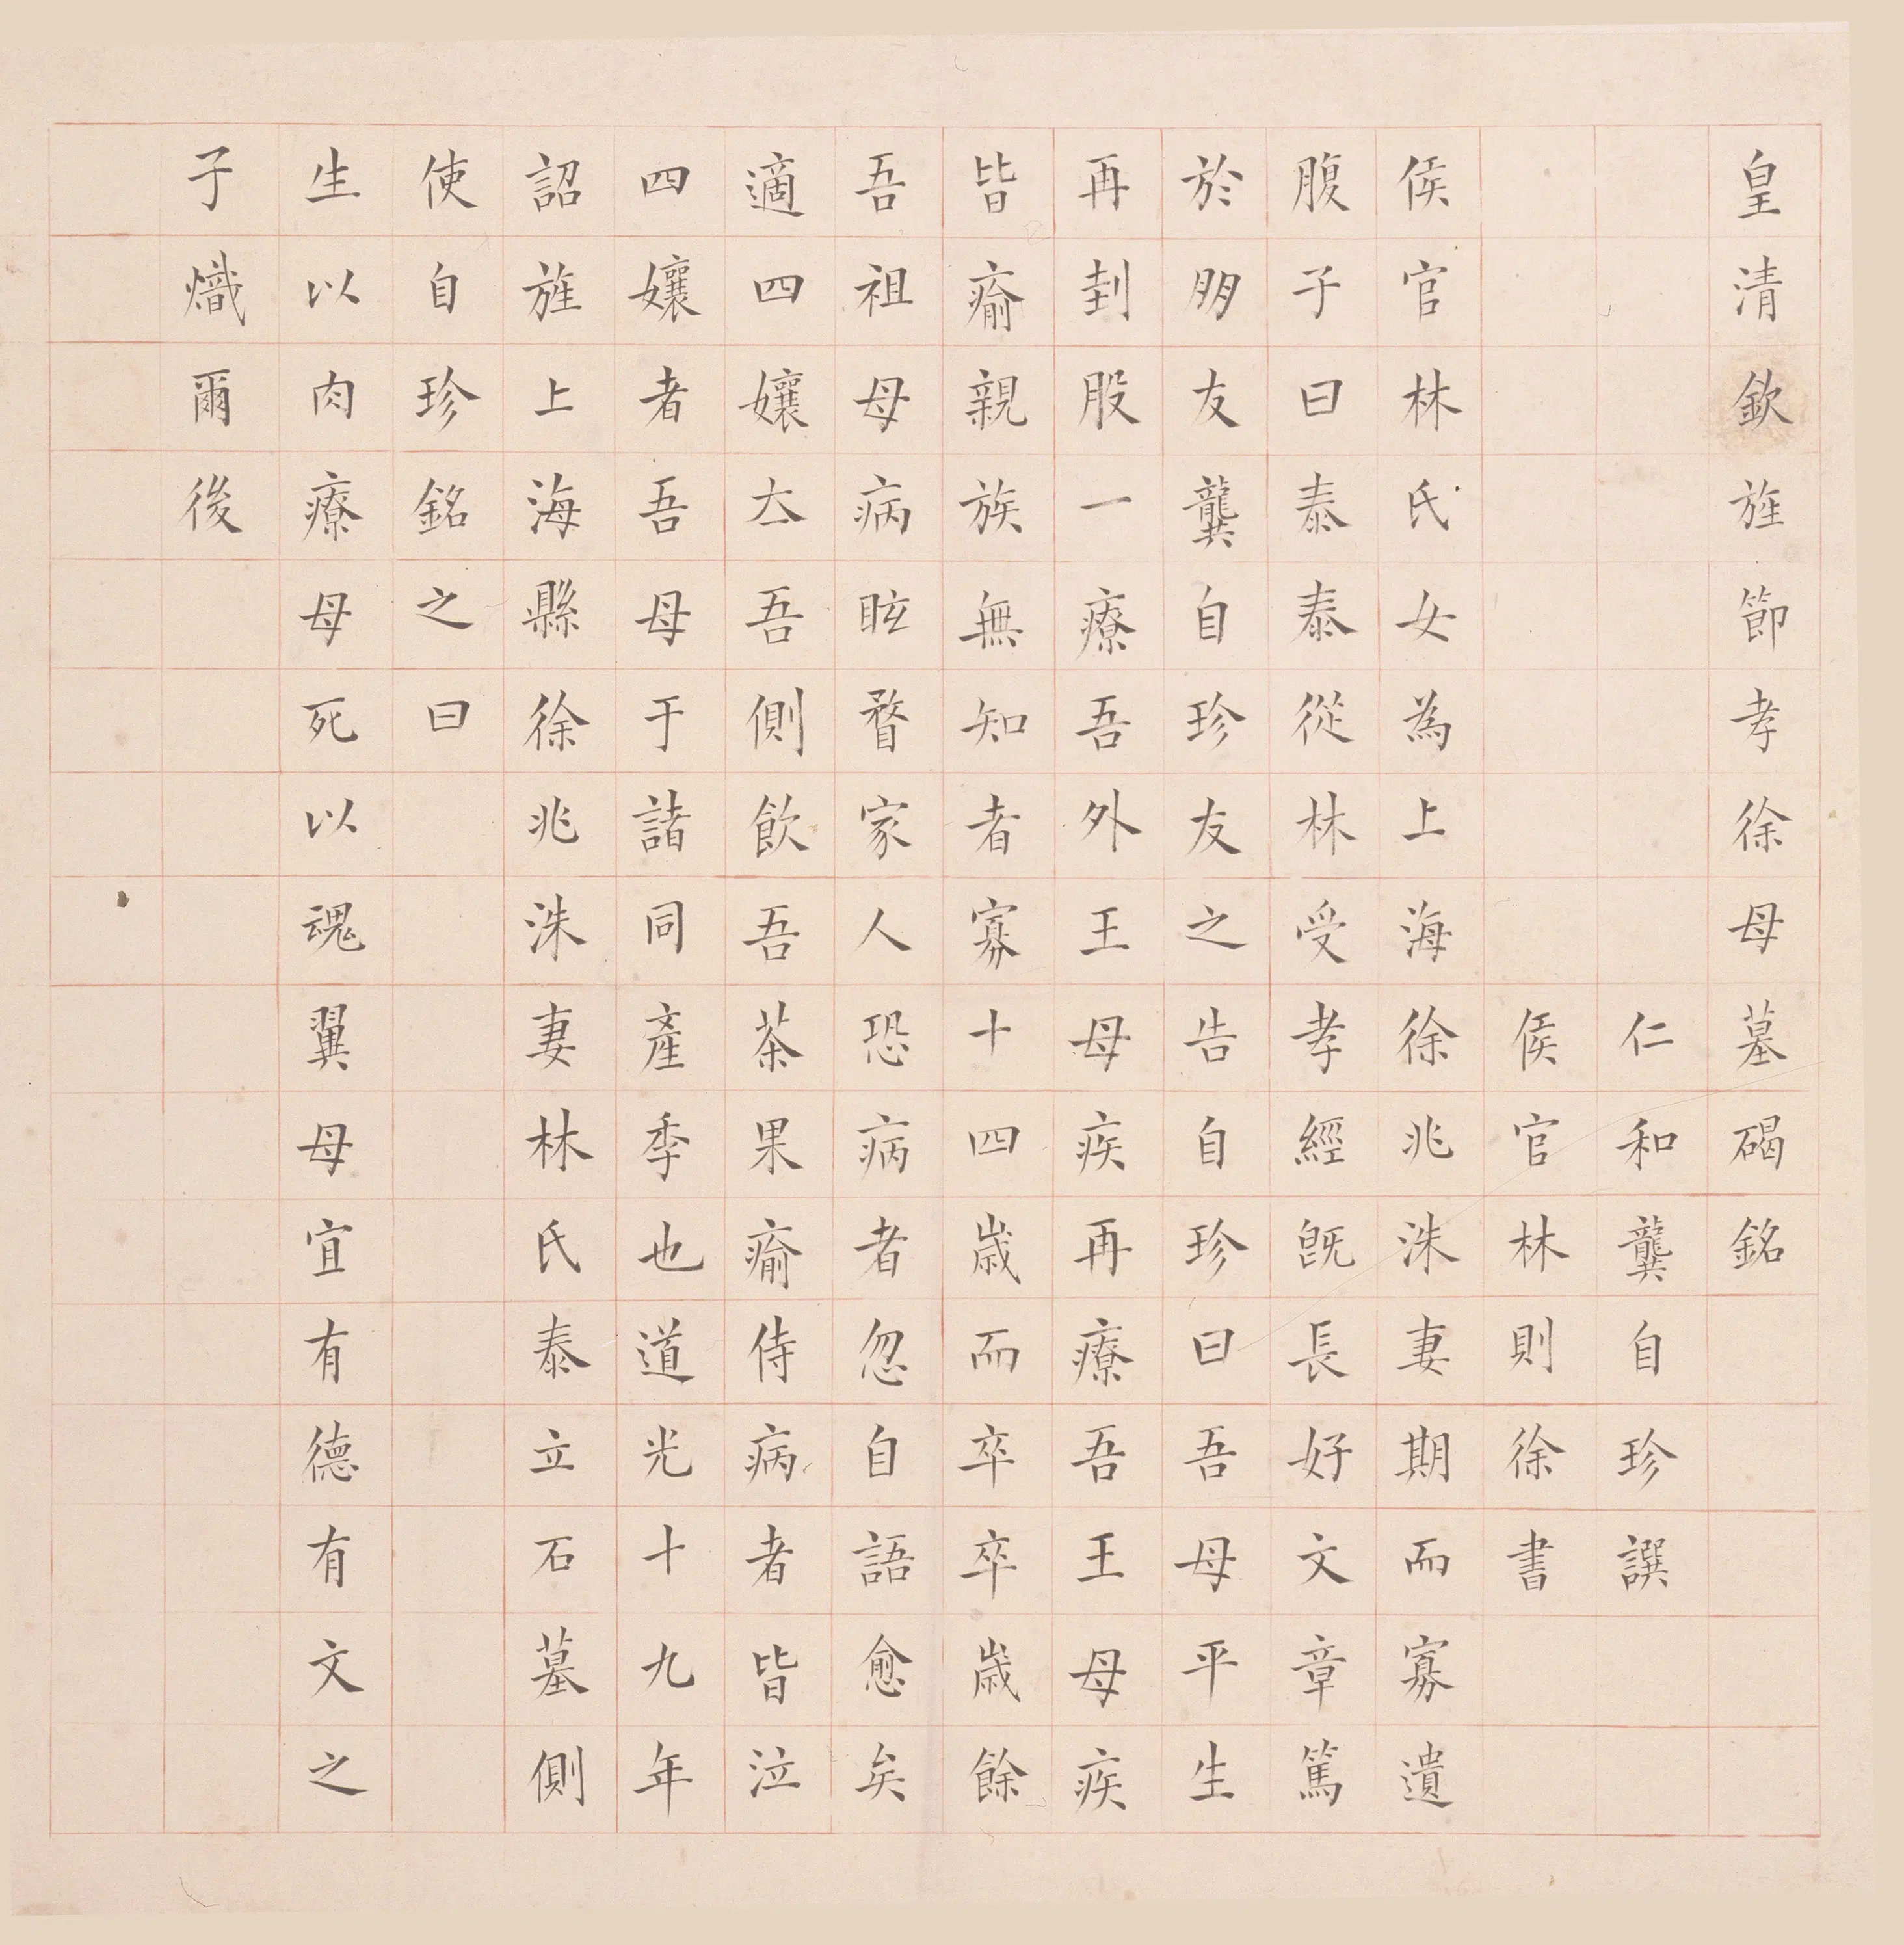 皇清欽旌節孝徐母墓碣銘
仁和龔自珍譔
侯官林則徐書
侯官林氏女為上海徐兆洙妻期而寡遺
腹子曰泰泰從林受孝經旣長好文章篤
於朋友龔自珍友之告自珍曰吾母平生
再刲股一療吾外王母疾再療吾王母疾
皆瘉親族無知者寡十四歲而卒卒歲餘
吾祖母病眩瞀家人恐病者忽自語愈矣
適四孃四去吾側飲吾茶果瘉侍病者皆泣
四孃者吾母于諸同產季也道光十九年
詔旌上海縣徐兆洙妻林氏泰立石墓側
使自珍銘之曰
生以肉療母死以魂翼母宜有德有文之
子熾爾後